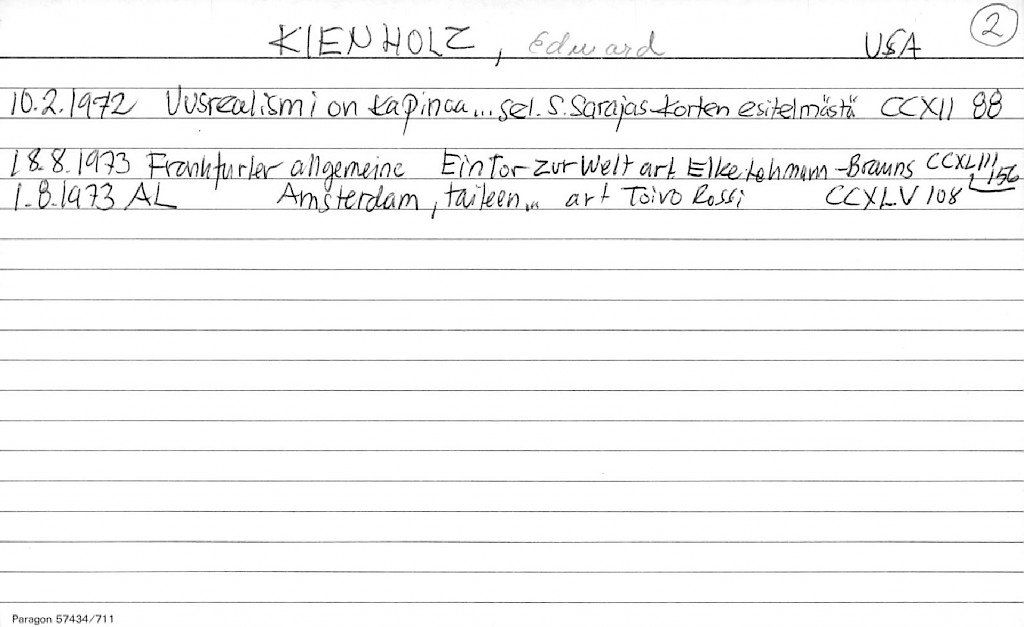 KIENHOLZ, Edward USA 2
10.2.1972 Uusrealismi on kapinaa... sel. S. Sarajas-Korten esitelmästä CCXII 88
18.8.1973 Frankfurter allgemeine Ein Tor zur Welt art. Elke Lehmann-Brauns CCXLIII 156
1.8.1973 AL Amsterdam, taiteen... art Toivo Rossi CCXLV 108
Paragon 57434/711